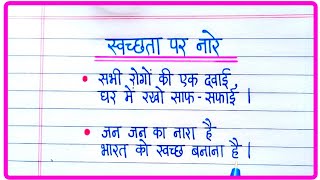 स्वच्छता पर नारे
• सभी रोगों की एक दवाई,
घर में रखो साफ-सफाई।
• जन जन का नारा है
भारत को स्वच्छ बनाना है।